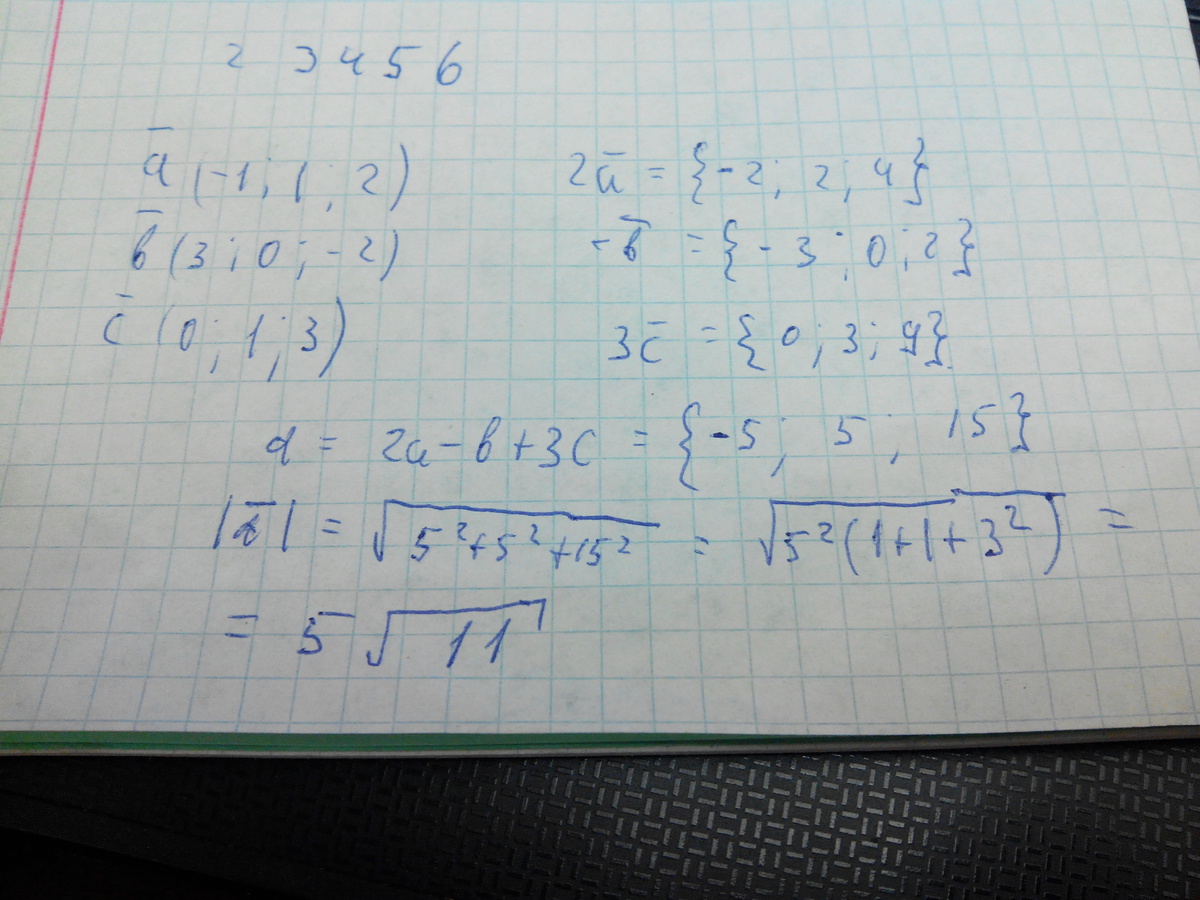 2 3 4 5 6
a̅ (-1; 1; 2) 2a̅ = {-2; 2; 4}
b̅ (3; 0; -2) -b̅ = {-3; 0; 2}
c̅ (0; 1; 3) 3c̅ = {0; 3; 9}
d = 2a - b + 3c = {-5; 5; 15}
|d̅| = √(5²+5²+15²) = √(5²(1+1+3²)) =
= 5√11